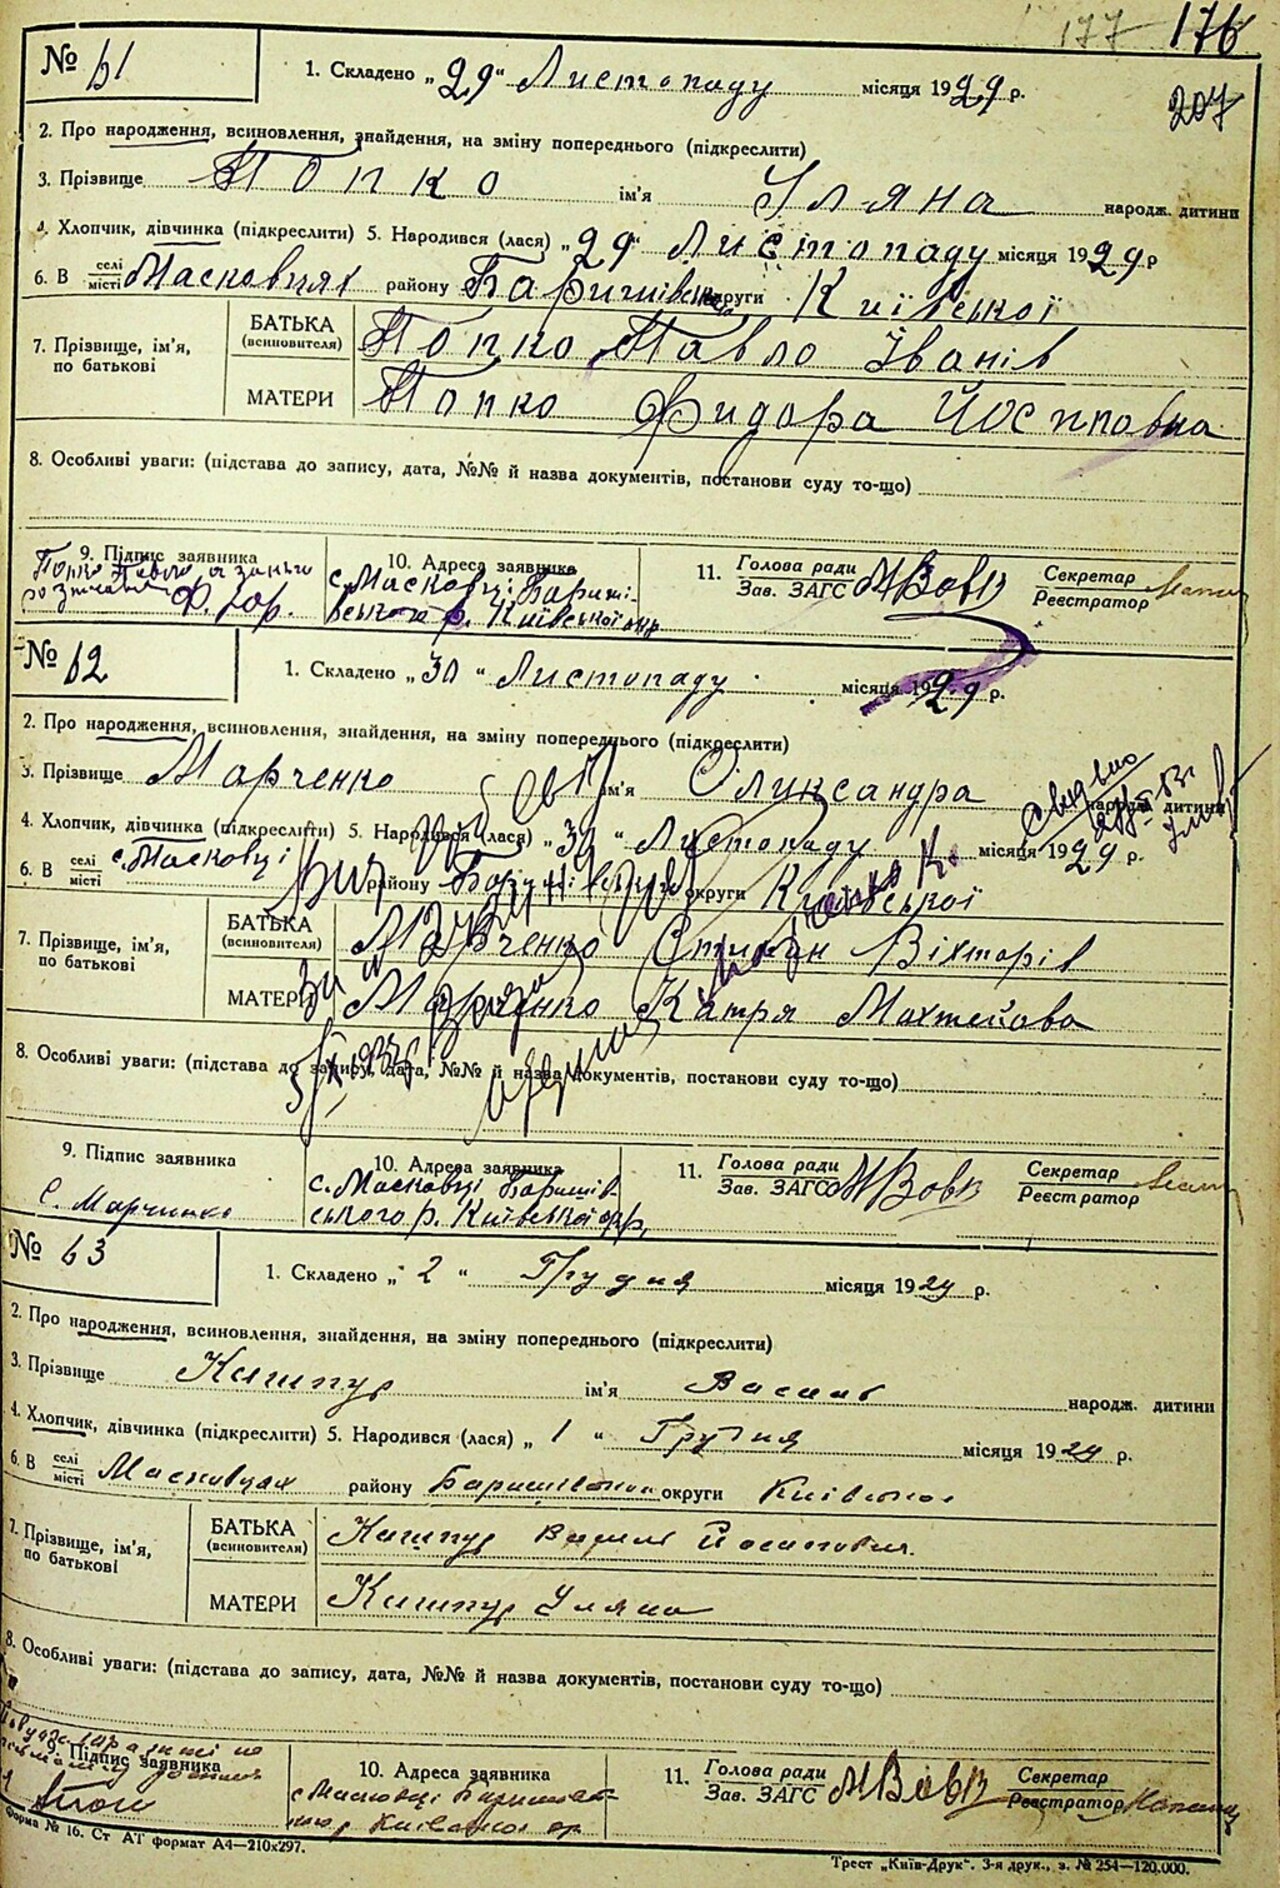 177 176
№ 61 1. Складено „29“ Листопаду місяця 1929 р.
207
2. Про народження, всиновлення, знайдення, на зміну попереднього (підкреслити)
3. Прізвище Попко ім’я Уляна народж. дитини
4. Хлопчик, дівчинка (підкреслити) 5. Народився (лася) „29“ Листопаду місяця 1929 р
6. В селі місті Масковцях району Баришівської округи Київської
7. Прізвище, ім’я, по батькові БАТЬКА (всиновителя) Попко Павло Іванів
МАТЕРИ Попко Фидора Йосиповна
8. Особливі уваги: (підстава до запису, дата, №№ й назва документів, постанови суду то-що)
9. Підпис заявника 10. Адреса заявника 11. Голова ради Зав. ЗАГС МВовк Секретар Реєстратор
Попко Павло а за нього с. Масковці Бариші-
розписався вського р. Київської окр
№ 62 1. Складено „30“ Листопаду місяця 1929 р.
2. Про народження, всиновлення, знайдення, на зміну попереднього (підкреслити)
3. Прізвище Марченко ім’я Олександра народж. дитини
4. Хлопчик, дівчинка (підкреслити) 5. Народився (лася) „30“ Листопаду місяця 1929 р.
6. В селі місті с. Масковці району округи Київської
7. Прізвище, ім’я, по батькові БАТЬКА (всиновителя) Марченко Степан Віхторів
МАТЕРИ Марченко Катря Махтейова
8. Особливі уваги: (підстава до запису, дата, №№ й назва документів, постанови суду то-що)
9. Підпис заявника 10. Адреса заявника 11. Голова ради Зав. ЗАГС МВовк Секретар Реєстратор
С. Марченко с. Масковці Баришів-
ського р. Київської окр.
№ 63 1. Складено „2“ Грудня місяця 1929 р.
2. Про народження, всиновлення, знайдення, на зміну попереднього (підкреслити)
3. Прізвище Кишпур ім’я Василь народж. дитини
4. Хлопчик, дівчинка (підкреслити) 5. Народився (лася) „1“ Грудня місяця 1929 р.
6. В селі місті Масковцях району Баришівської округи Київської
7. Прізвище, ім’я, по батькові БАТЬКА (всиновителя) Кишпур Василь Йосипович.
МАТЕРИ Кишпур Уляна
8. Особливі уваги: (підстава до запису, дата, №№ й назва документів, постанови суду то-що)
9. Підпис заявника 10. Адреса заявника 11. Голова ради Зав. ЗАГС МВовк Секретар Реєстратор
с Масковці
Київської окр
Форма № 16. Ст АТ формат А4—210х297.
Трест „Київ-Друк“. 3-я друк., з. № 254—120.000.